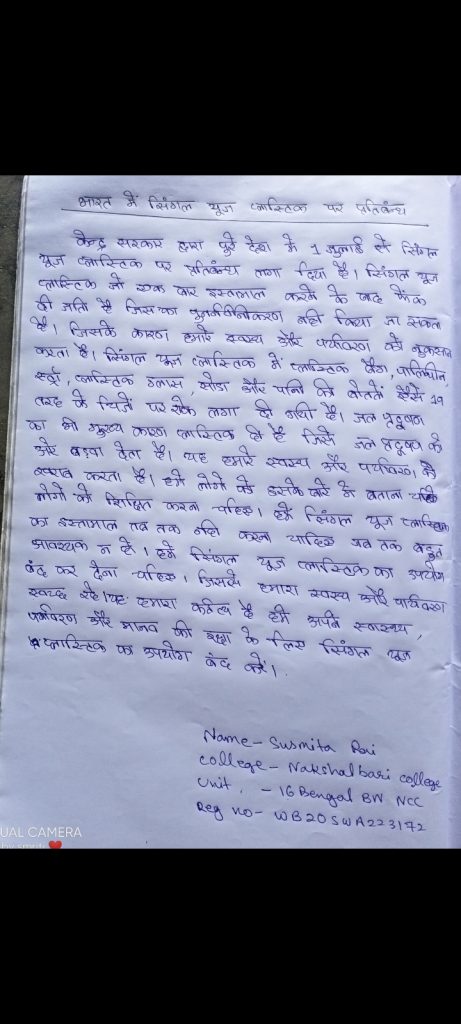 भारत में सिंगल यूज प्लास्टिक पर प्रतिबन्ध
केन्द्र सरकार द्वारा पुरे देश में 1 जुलाई से सिंगल
यूज प्लास्टिक पर प्रतिबन्ध लगा दिया है। सिंगल यूज
प्लास्टिक जो एक बार इस्तामाल करने के बाद फेंक
दी जाति है जिसका नहीं किया जा सकता
है। जिसके कारण हमारे स्वस्थ और पर्यावरण को नुकसान
करता है। सिंगल यूज प्लास्टिक में प्लास्टिक बैग, पालिथीन,
स्ट्रॉ, प्लास्टिक ग्लास, सोडा और पानी की बोतलें जैसे 19
तरह के चिजों पर रोक लगा दी गयी है। जल प्रदूषण
का भी मुख्य कारण प्लास्टिक ही है जिसे जल प्रदूषण को
और बढ़वा देता है। यह हमारे स्वस्थ और पर्यावरण को
खराब करता है। हमें लोगों को इसके बारे में बताना चाहिए
लोगों को शिक्षित करना चहिए। हमें सिंगल यूज प्लास्टिक
का इस्तामाल तब तक नही करना चाहिए जब तक बहुत
आवश्यक न हो। हमें सिंगल यूज प्लास्टिक का उपयोग
बंद कर देना चहिए। जिससे हमारा स्वस्थ और पार्यावरण
स्वच्छ रहे। यह हमारा कर्तव्य है हमें अपने स्वास्थ्य,
पर्यावरण और मानव की रक्षा के लिए सिंगल यूज
प्लास्टिक का उपयोग बंद करें।
Name- Susmita Rai
College- Nakshalbari college
Unit. - 16 Bengal BN NCC
Reg no- WB20SWA223172
UAL CAMERA
by smriti